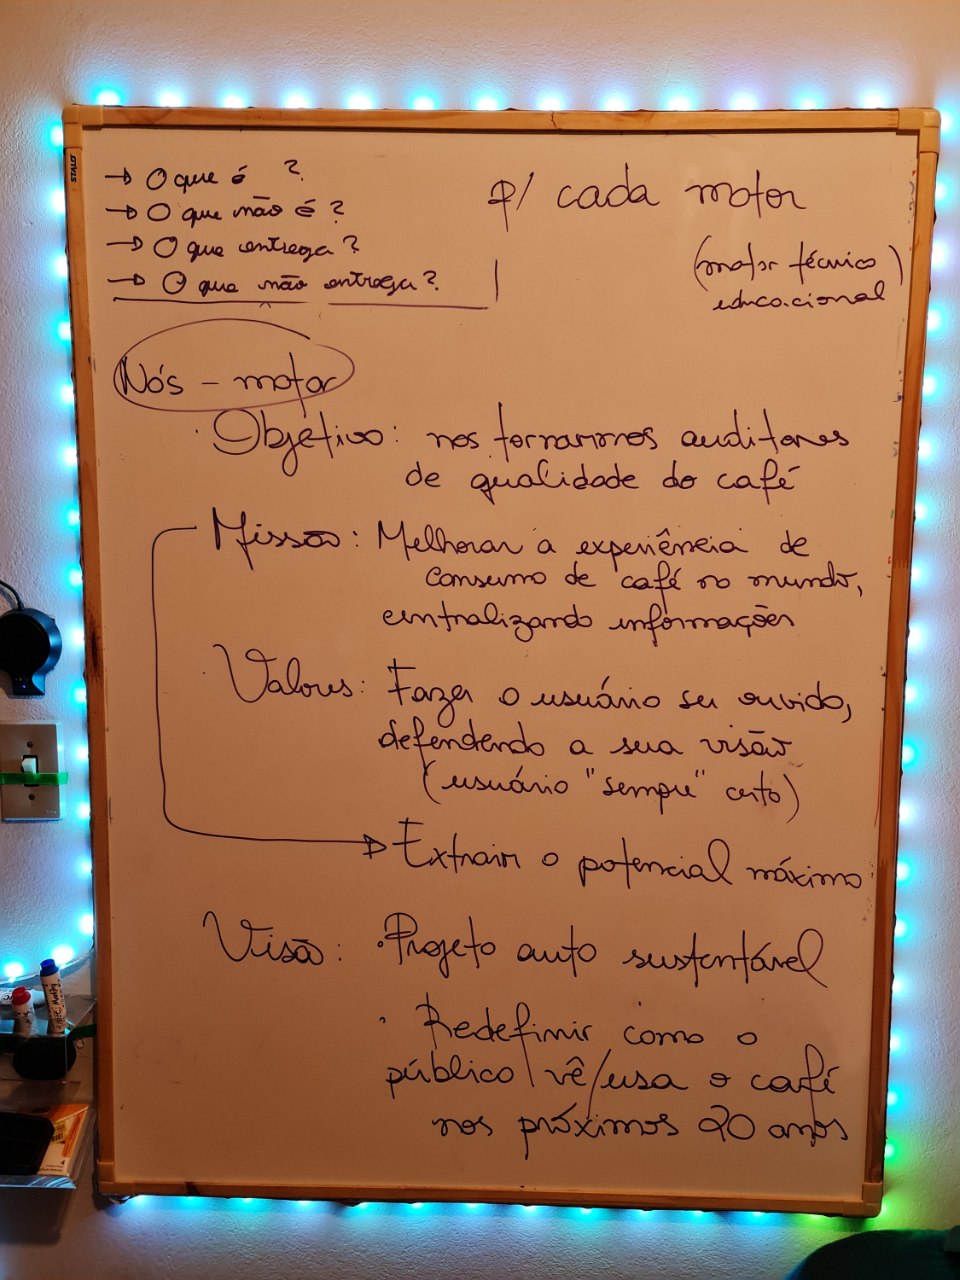 → O que é ?
→ O que não é ?
→ O que entrega ?
→ O que não entrega ?
p/ cada motor
(motor técnico
educacional)
Nós - motor
· Objetivo: nos tornarmos auditores
de qualidade do café
Missão: Melhorar a experiência de
consumo de café no mundo,
centralizando informações
Valores: Fazer o usuário ser ouvido,
defendendo a sua visão
(usuário "sempre" certo)
→ Extrair o potencial máximo
Visão: · Projeto auto sustentável
· Redefinir como o
público vê/usa o café
nos próximos 20 anos
STALO